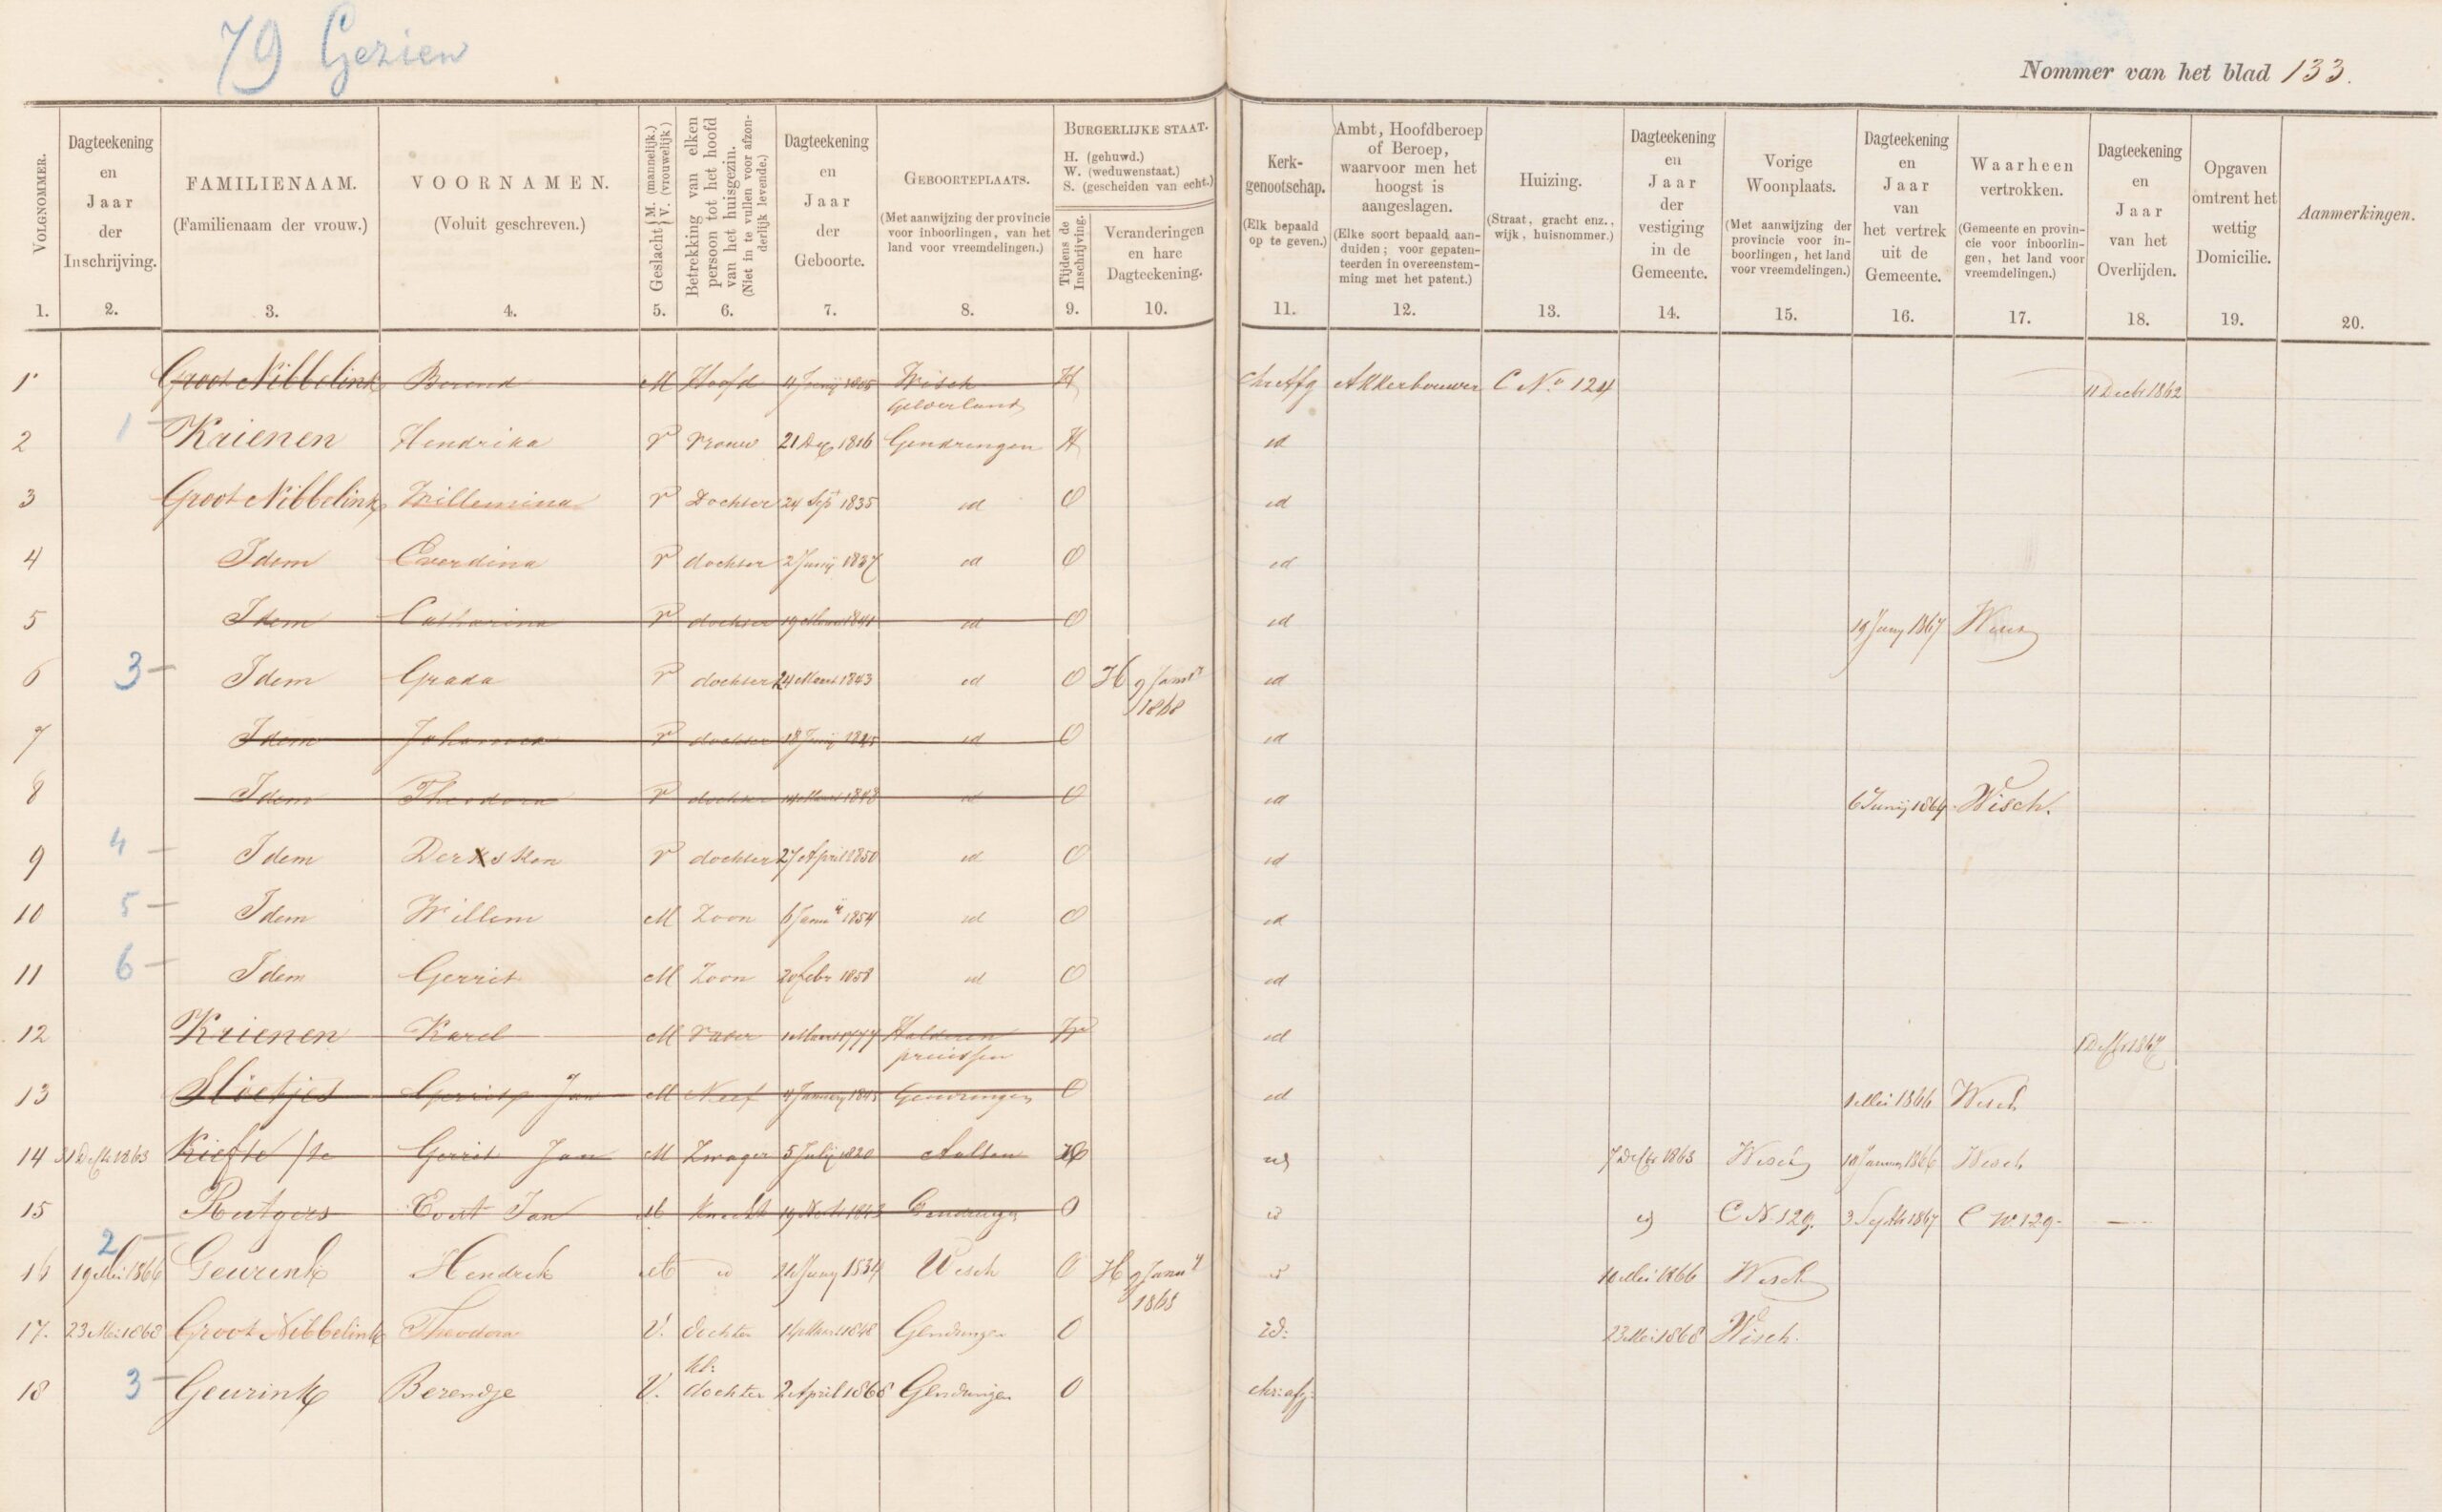 79 Gezien
Nommer van het blad 133.
VOLGNOMMER.
Dagteekening en Jaar der Inschrijving.
FAMILIENAAM.
(Familienaam der vrouw.)
VOORNAMEN.
(Voluit geschreven.)
Geslacht { M. (mannelijk.) V. (vrouwelijk)
Betrekking van elken persoon tot het hoofd van het huisgezin.
(Niet in te vullen voor afzonderlijk levende.)
Dagteekening en Jaar der Geboorte.
GEBOORTEPLAATS.
(Met aanwijzing der provincie voor inboorlingen, van het land voor vreemdelingen.)
BURGERLIJKE STAAT.
H. (gehuwd.)
W. (weduwenstaat.)
S. (gescheiden van echt.)
Tijdens de Inschrijving.
Veranderingen en hare Dagteekening.
Kerkgenootschap.
(Elk bepaald op te geven.)
Ambt, Hoofdberoep of Beroep, waarvoor men het hoogst is aangeslagen.
(Elke soort bepaald aanduiden; voor gepatenteerden in overeenstemming met het patent.)
Huizing.
(Straat, gracht enz., wijk, huisnommer.)
Dagteekening en Jaar der vestiging in de Gemeente.
Vorige Woonplaats.
(Met aanwijzing der provincie voor inboorlingen, het land voor vreemdelingen.)
Dagteekening en Jaar van het vertrek uit de Gemeente.
Waarheen vertrokken.
(Gemeente en provincie voor inboorlingen, het land voor vreemdelingen.)
Dagteekening en Jaar van het Overlijden.
Opgaven omtrent het wettig Domicilie.
Aanmerkingen.
1. 2. 3. 4. 5. 6. 7. 8. 9. 10. 11. 12. 13. 14. 15. 16. 17. 18. 19. 20.
1 Groot Nibbelink Berend M Hoofd 1805 Wisch Gelderland H Chr Afg Akkerbouwer C No 124 11 Decb 1862
2 1 Krienen Hendrika V Vrouw 21 Aug 1816 Gendringen H id
3 Groot Nibbelink Willemina V Dochter 24 Sept 1835 id O id
4 Idem Everdina V dochter 2 Junij 1837 id O id
5 Idem Catharina V dochter 19 Maart 1841 id O id 19 Juny 1867 Wisch
6 3 Idem Grada V dochter 24 Maart 1843 id O H 9 Jany 1868 id
7 Idem Johanna V dochter 18 Junij 1845 id O id
8 Idem Theodora V dochter 14 Maart 1848 id O id 6 Junij 1864 Wisch.
9 4 Idem Derksken V dochter 27 April 1850 id O id
10 5 Idem Willem M Zoon 6 Janu 1854 id O id
11 6 Idem Gerrit M Zoon 20 Febr 1858 id O id
12 Krienen Karel M Vader 1 Maart 1777 Halderen pruissen W id
13 Gerrit Jan M Neef 4 January 1845 Gendringen O id 1 Mei 1866 Wisch
14 31 Decb 1863 Kiefte /te Gerrit Jan M Zwager 5 Julij 1820 Aalten id 7 Decbr 1863 Wisch 10 January 1866 Wisch
15 Rutgers Evert Jan M Knecht 19 Novb 1843 Gendringen O id id C N 129. 3 Septb 1867 C No 129.
16 2 19 Mei 1866 Geurink Hendrik M id 1834 Wisch O H 9 Janu 1868 id 10 Mei 1866 Wisch
17. 23 Mei 1868 Groot Nibbelink Theodora V. dochter 14 Maart 1848 Gendringen O id: 23 Mei 1868 Wisch.
18 3 Geurink Berendje V. kl: dochter 2 April 1868 Gendringen O chr: afg: